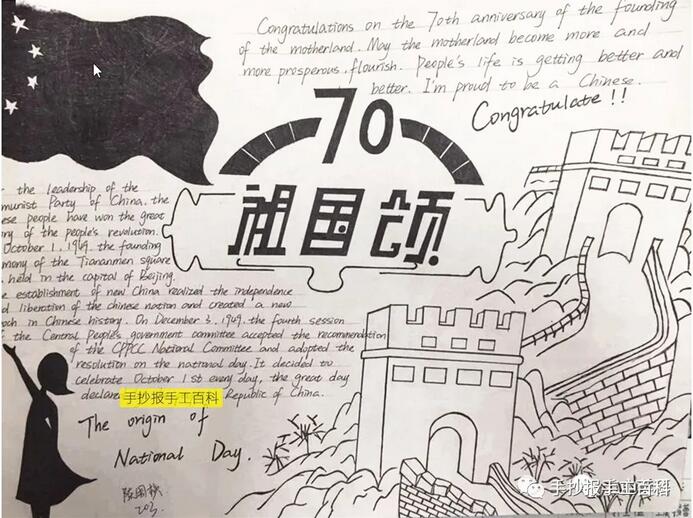 Congratulations on the 70th anniversary of the founding
of the motherland. May the motherland become more and
more prosperous, flourish. People's life is getting better and
better. I'm proud to be a Chinese.
Congratulate!!
70
祖国颂
the leadership of the
munist Party of China. the
ese people have won the great
ry of the people's revolution.
October 1.1949. the founding
mony of the Tiananmen square
held in the capital of Beijing.
e establishment of new China realized the independence
d liberation of the chinese nation and created a new
och in Chinese history. On December 3.1949. the fourth session
f the Central People's government committee accepted the recommendation
of the CPPCC National Committee and adopted the
resolution on the national day. It decided to
celebrate October 1st every day, the great day
declare 手抄报手工百科 Republic of China.
The origin of
National Day.
手抄报手工百科